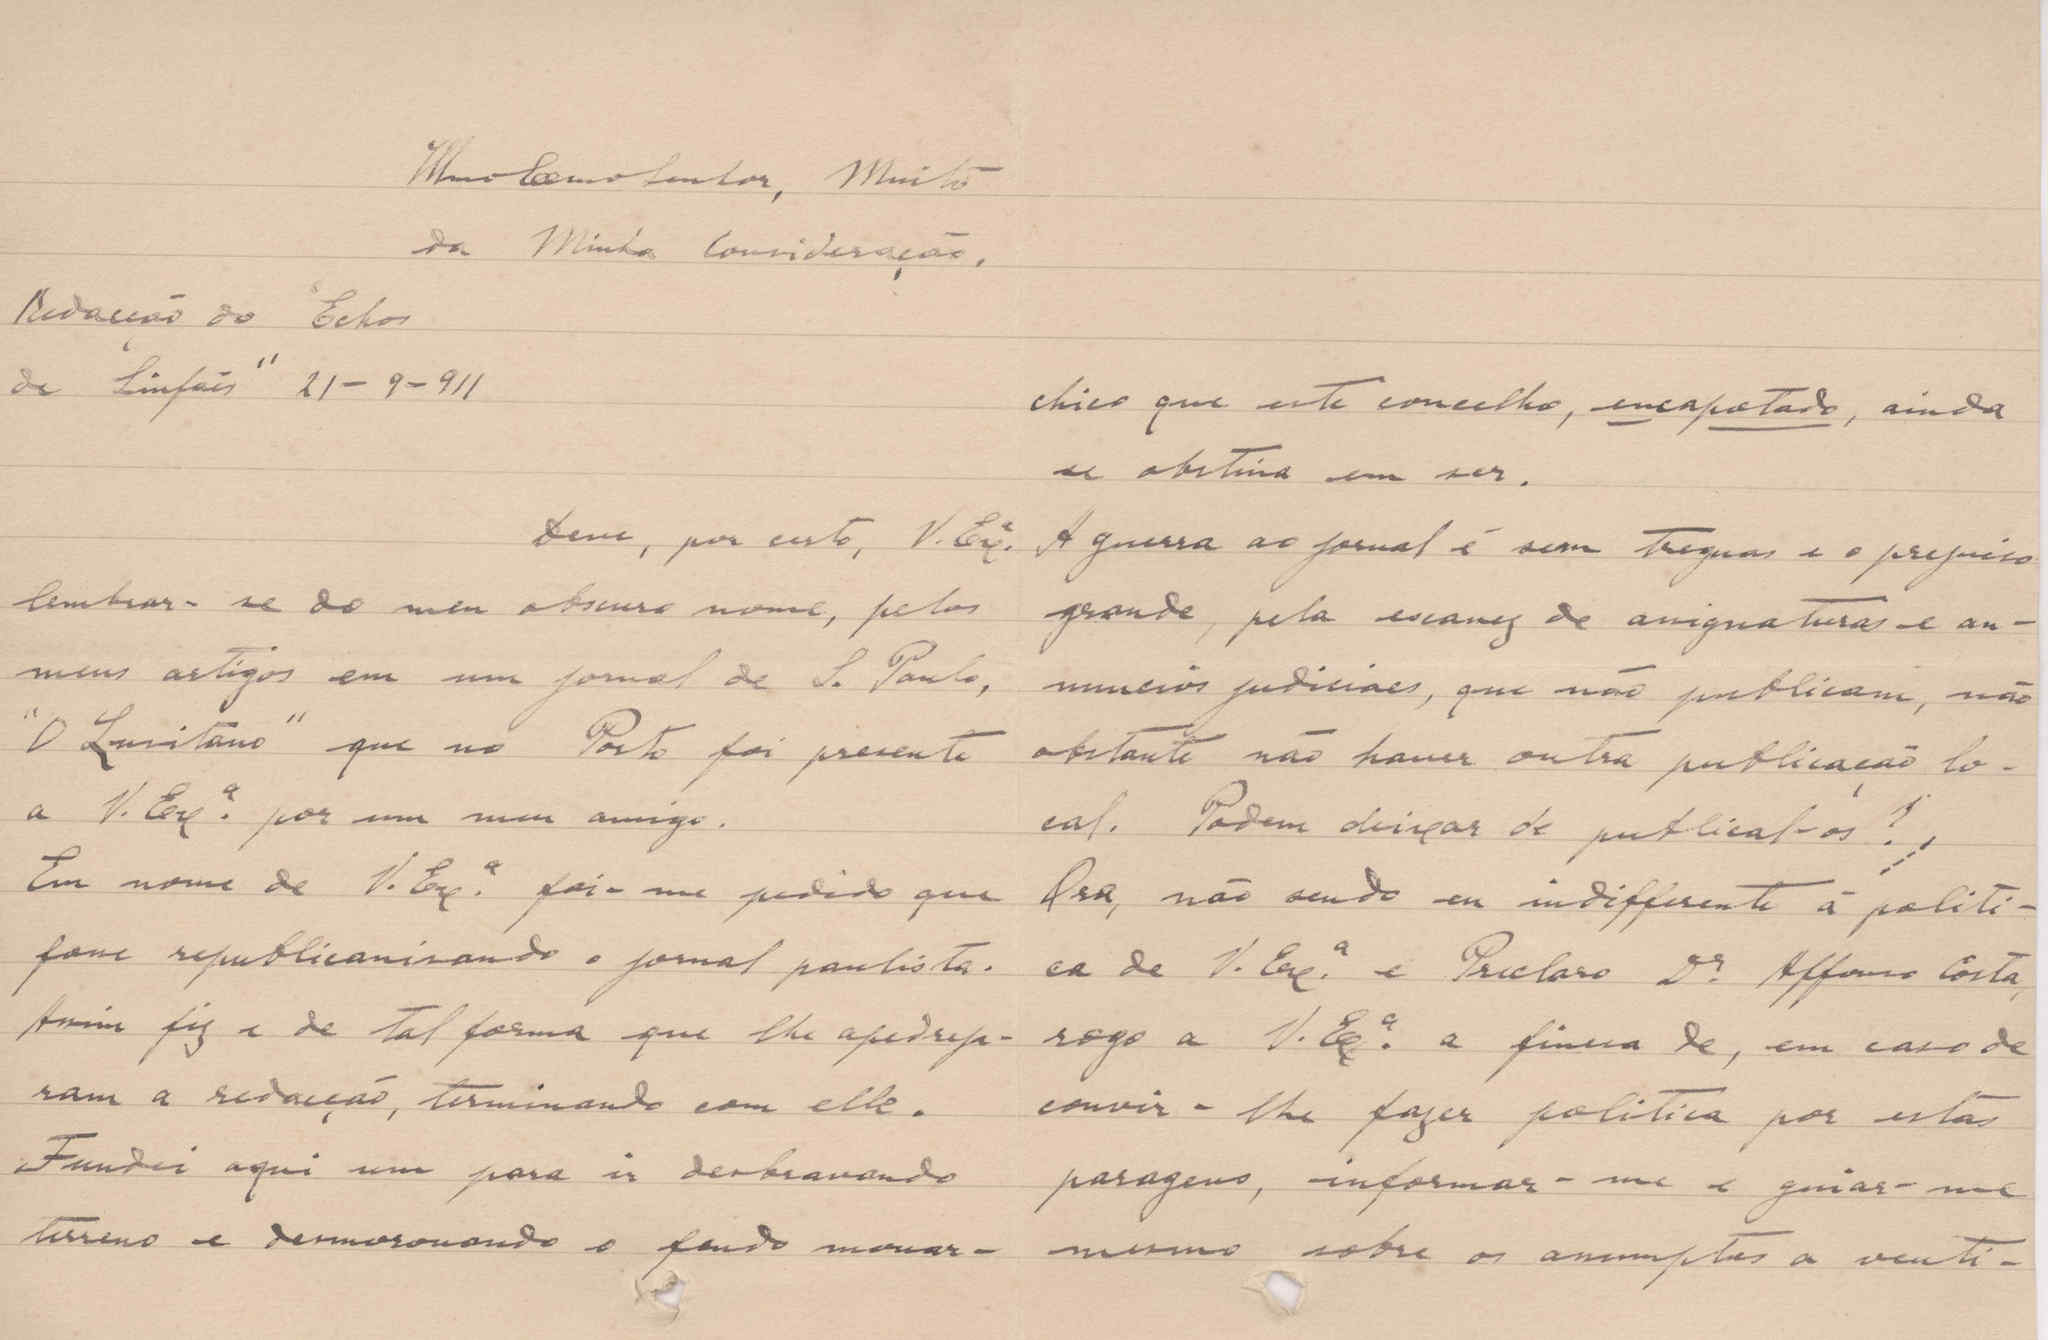 Illmo Exmo Senhor, Muito
da Minha Consideração.
Redacção do "Echos
de Sinfães" 21-9-911
Deve, por certo, V. Exª.
lembrar-se do meu obscuro nome, pelos
meus artigos em um jornal de S. Paulo,
"O Lusitano" que no Porto foi presente
a V. Exª. por um meu amigo.
Em nome de V. Exª. foi-me pedido que
fosse republicanisando o jornal paulista.
Assim fiz e de tal forma que lhe apedreja-
ram a redacção, terminando com elle.
Fundei aqui um para ir desbravando
terreno e desmoronando o feudo monar-
chico que este concelho, encapotado, ainda
se obstina em ser.
A guerra ao jornal é sem treguas e o prejuiso
grande, pela escassez de assignaturas e an-
nuncios judiciaes, que não publicam, não
obstante não haver outra publicação lo-
cal. Podem deixar de publical-os?!
Ora, não sendo eu indifferente á politi-
ca de V. Exª. e Preclaro Dr. Affonso Costa,
rogo a V. Exª. a fineza de, em caso de
convir-lhe fazer politica por estas
paragens, informar-me e guiar-me
mesmo sobre os assumptos a venti-